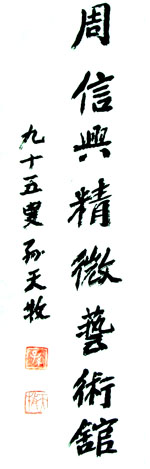 周信興精微藝術舘
九十五叟孫天牧